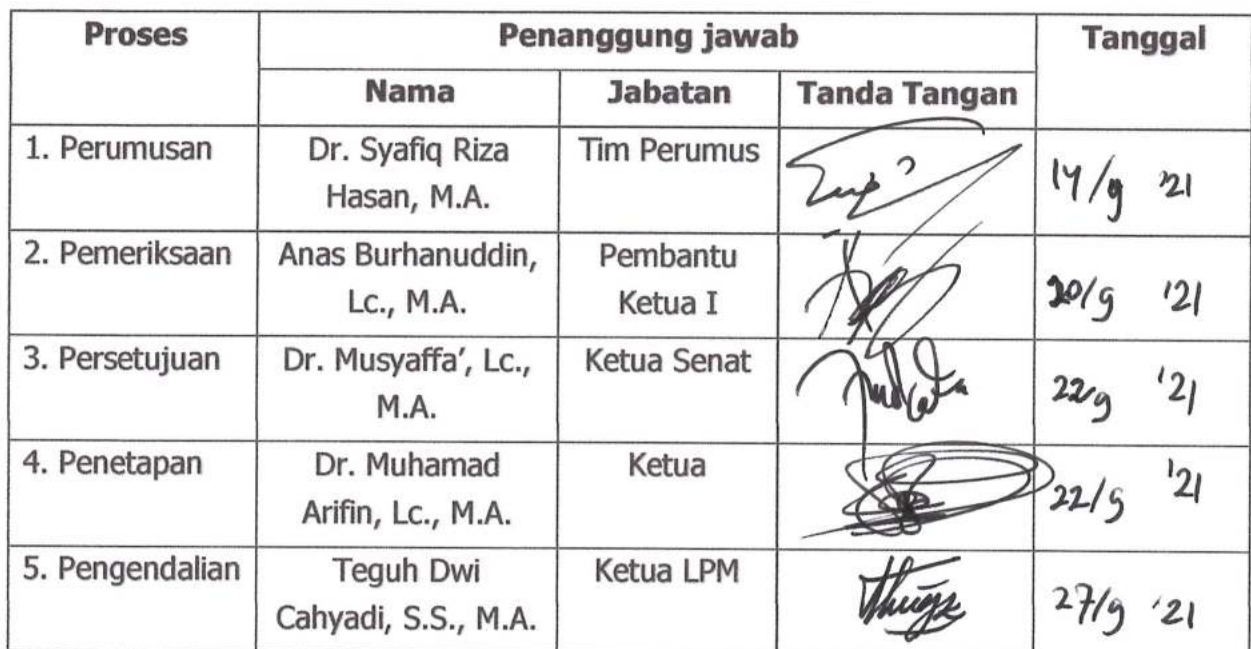 Proses Penanggung jawab Tanggal
Nama Jabatan Tanda Tangan
1. Perumusan Dr. Syafiq Riza Tim Perumus
Hasan, M.A. 14/9 '21
2. Pemeriksaan Anas Burhanuddin, Pembantu
Lc., M.A. Ketua I 20/9 '21
3. Persetujuan Dr. Musyaffa', Lc., Ketua Senat
M.A. 22/9 '21
4. Penetapan Dr. Muhamad Ketua
Arifin, Lc., M.A. 22/9 '21
5. Pengendalian Teguh Dwi Ketua LPM
Cahyadi, S.S., M.A. 27/9 '21